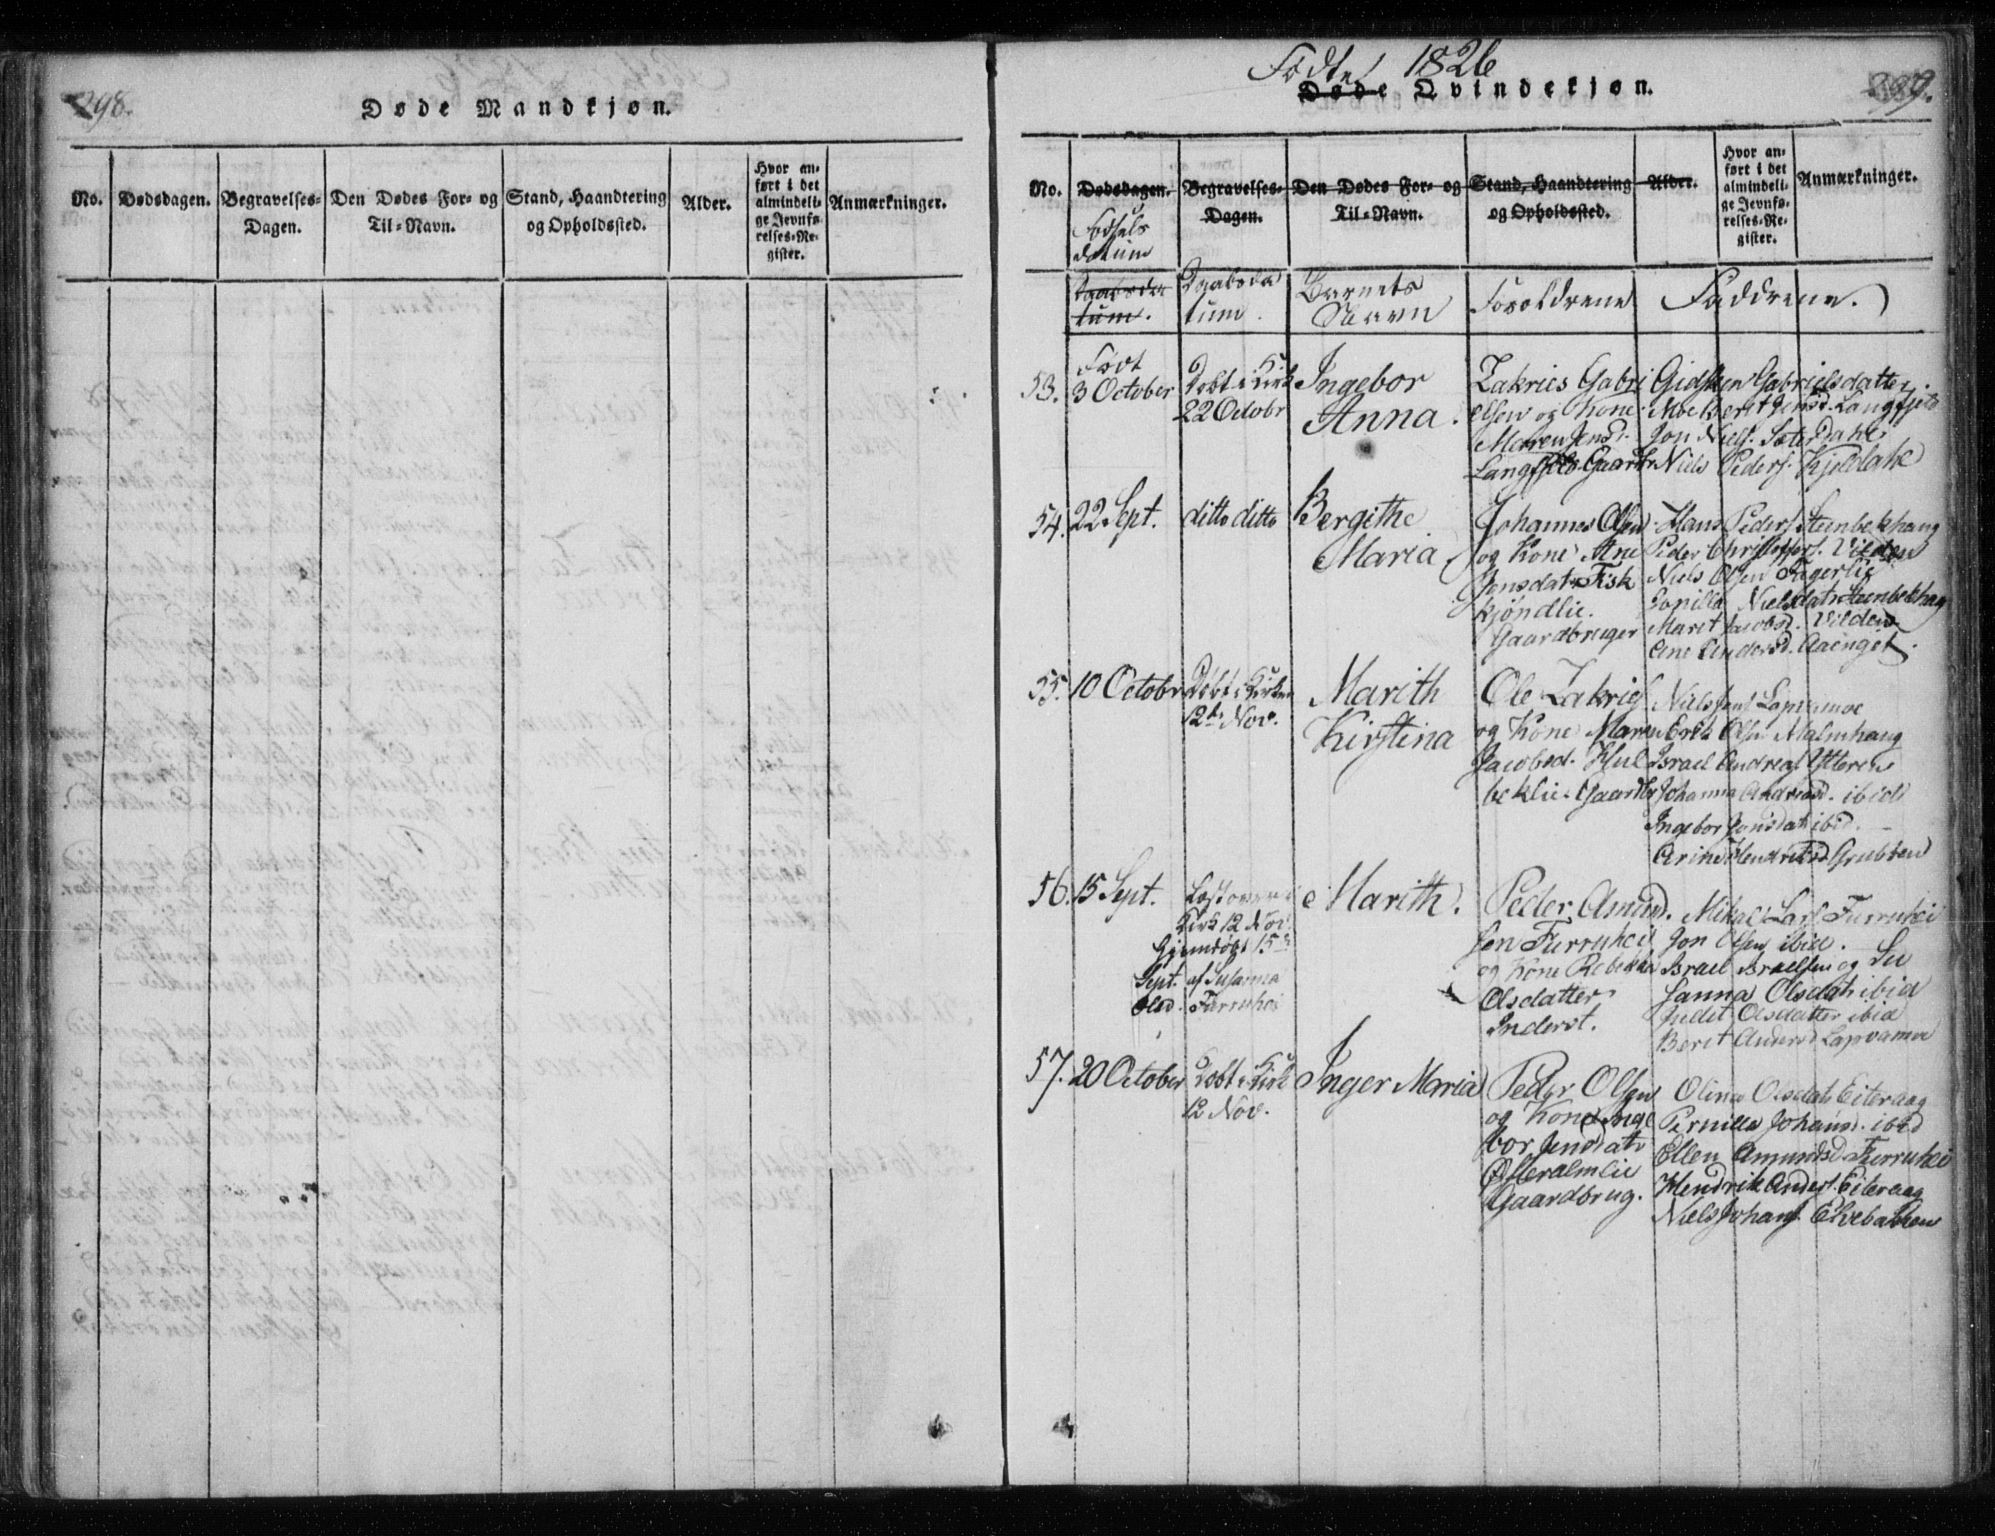 298.
Døde Mandkjøn.
No.
Dødsdagen.
Begravelses-
Dagen.
Den Dødes For- og
Til-Navn.
Stand, Haandtering
og Opholdssted.
Alder.
Hvor an-
ført i det
almindeli-
ge Jevnfø-
relses-Re-
gister.
Anmærkninger.
Födte 1826
Døde Qvindekjøn.
299.
No.
Dødsdagen.
Födsels
datum
Begravelses-
Dagen.
Den Dødes For- og
Til-Navn.
Stand, Haandtering
og Opholdssted.
Alder.
Hvor an-
ført i det
almindeli-
ge Jevnfø-
relses-Re-
gister.
Anmærkninger.
Daabsda
tum.
Daabsda
tum.
Barnets
Navn
Forældrene
Faddrene.
53.
Födt
3 October
Döbt i Kirk
22 Octobr
Ingebor
Anna.
Zakries Gabri
elsen og Kone
Maren Jensd.
Langfjeld Gaardbr
Gidsken Gabrielsdatter
Moe Berit Jensd. Langfjeld
Jon Niels. Sæterdahl
Niels Peders. Kjeldahl
54.
22 Sept.
ditto ditto
Bergithe
Maria
Johannes Olsen
og Kone Ane
Jensdatr Fisk
kjöndlie.
Gaardbruger
Hans Peders. Steenbekhaug
Peder Christophers. Vilden
Niels Olsen Fagerlie
Pernilla Nielsdatr Steenbekhaug
Marit Jacobsd. Vilden
Ane Andersd. Aaenget.
55.
10 Octobr
Döbt i Kirken
12te Nov.
Marith
Kirstina
Ole Zakries
og Kone Maren
Jacobsd. Kul
beklie Gaardbr
Niels Jens. Lapvamoe
Erik Olsen Malmhaug
Israel Andreas. Ytteren
Johanna Andreasd. ibid
Ingebor Jonsdatr ibid.
Hendriksd Grubben
56.
15 Sept.
Læst over i
Kirk 12 Nov.
Hjemdöbt 15de
Sept. af Susanna
Olsd. Furruhei
Marith.
Peder Amund
sen Furruhei
og Kone Rebekka
Olsdatter
Inderst.
Mikal Lars. Furruhei
Jon Olsen ibid.
Israel Israelsen og Su
sanna Olsdatr ibid
Judit Olsdatter ibid
Berit Andersd Lapvamoe
57.
20 October
Döbt i Kirk
12 Nov.
Inger Maria
Peder Olsen
og Kone Inge
bor Jensdatr
Østeralmlie
Gaardbrug.
Olina Olsdatr Eiteraag
Pernilla Johansd. ibid
Ellen Amundsd Furruhei
Hendrik Anders. Eiteraag
Niels Johans. Elvebakken